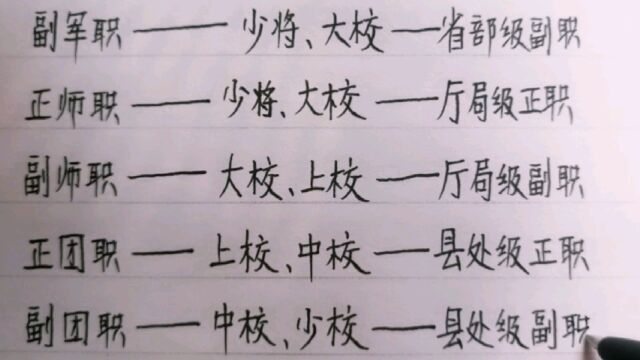 副军职——少将、大校—省部级副职
正师职——少将、大校——厅局级正职
副师职——大校、上校——厅局级副职
正团职——上校、中校——县处级正职
副团职——中校、少校——县处级副职